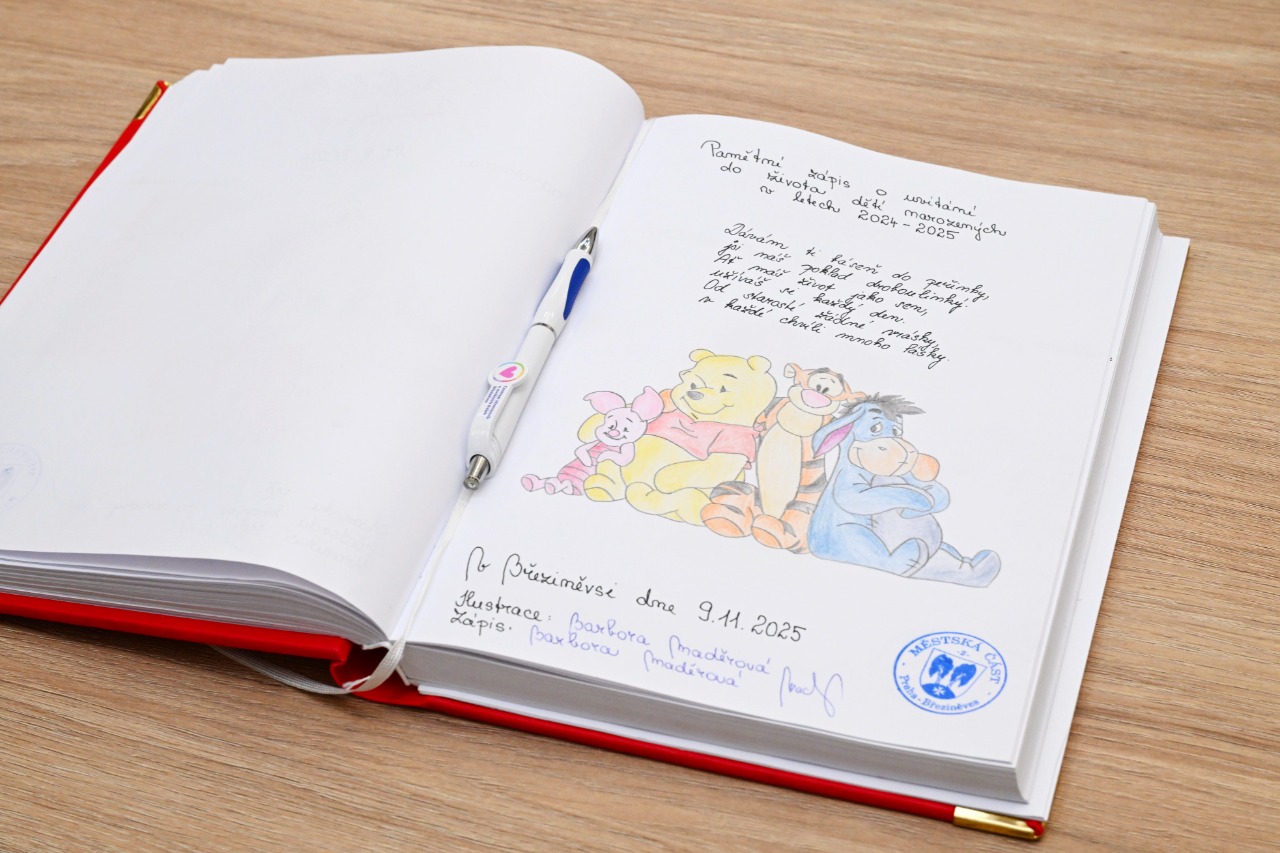 Pamětní zápis o uvítání
do života dětí narozených
v letech 2024-2025
Dávám ti báseň do peřinky,
jsi náš poklad droboulinký.
Ať máš život jako sen,
užíváš se každý den.
Od starostí žádné vrásky,
v každé chvíli mnoho lásky.
V Březiněvsi dne 9.11.2025
Ilustrace: Barbora Maděrová
Zápis: Barbora Maděrová
MĚSTSKÁ ČÁST
-2-
Praha-Březiněves